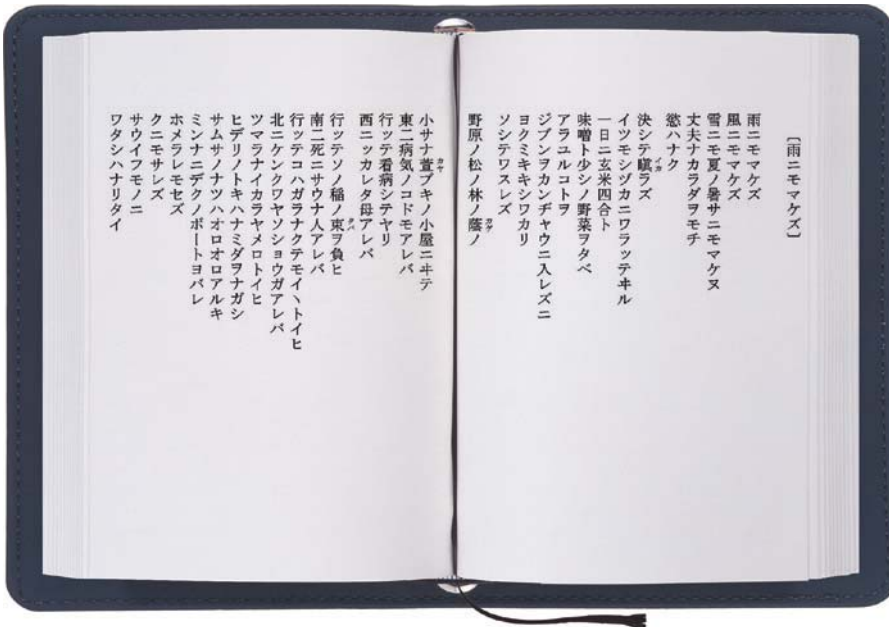 〔雨ニモマケズ〕
雨ニモマケズ
風ニモマケズ
雪ニモ夏ノ暑サニモマケヌ
丈夫ナカラダヲモチ
慾ハナク
決シテ瞋ラズ
イツモシヅカニワラッテヰル
一日ニ玄米四合ト
味噌ト少シノ野菜ヲタベ
アラユルコトヲ
ジブンヲカンヂャウニ入レズニ
ヨクミキキシワカリ
ソシテワスレズ
野原ノ松ノ林ノ蔭ノ
小サナ萱ブキノ小屋ニヰテ
東ニ病気ノコドモアレバ
行ッテ看病シテヤリ
西ニツカレタ母アレバ
行ッテソノ稲ノ束ヲ負ヒ
南ニ死ニサウナ人アレバ
行ッテコハガラナクテモイヽトイヒ
北ニケンクヮヤソショウガアレバ
ツマラナイカラヤメロトイヒ
ヒデリノトキハナミダヲナガシ
サムサノナツハオロオロアルキ
ミンナニデクノボートヨバレ
ホメラレモセズ
クニモサレズ
サウイフモノニ
ワタシハナリタイ